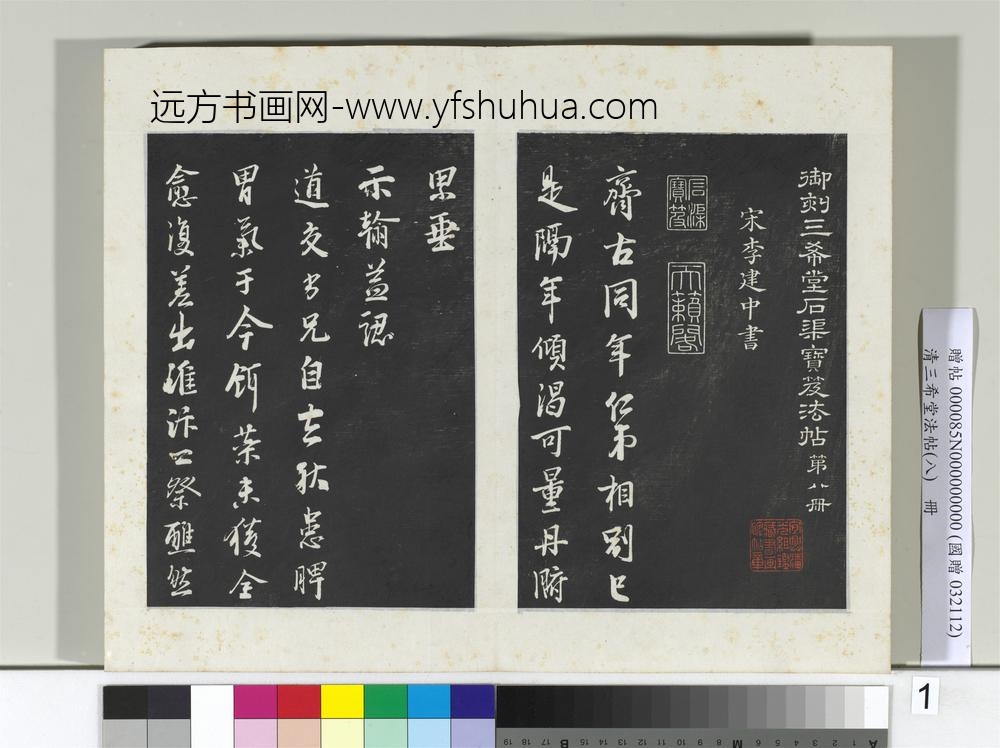 远方书画网-www.yfshuhua.com
御刻三希堂石渠寶笈法帖 第八冊
宋李建中書
石渠寶笈
天籟閣
齊古同年仁弟相別已
是隔年傾渴可量丹膺
思垂
示翰益認
道交
兄自去秋患脾
胃氣于今
未獲全
愈復差出淮汴
祭醮然
贈帖 000085N000000000 (國贈 032112)
清三希堂法帖(八) 冊
1